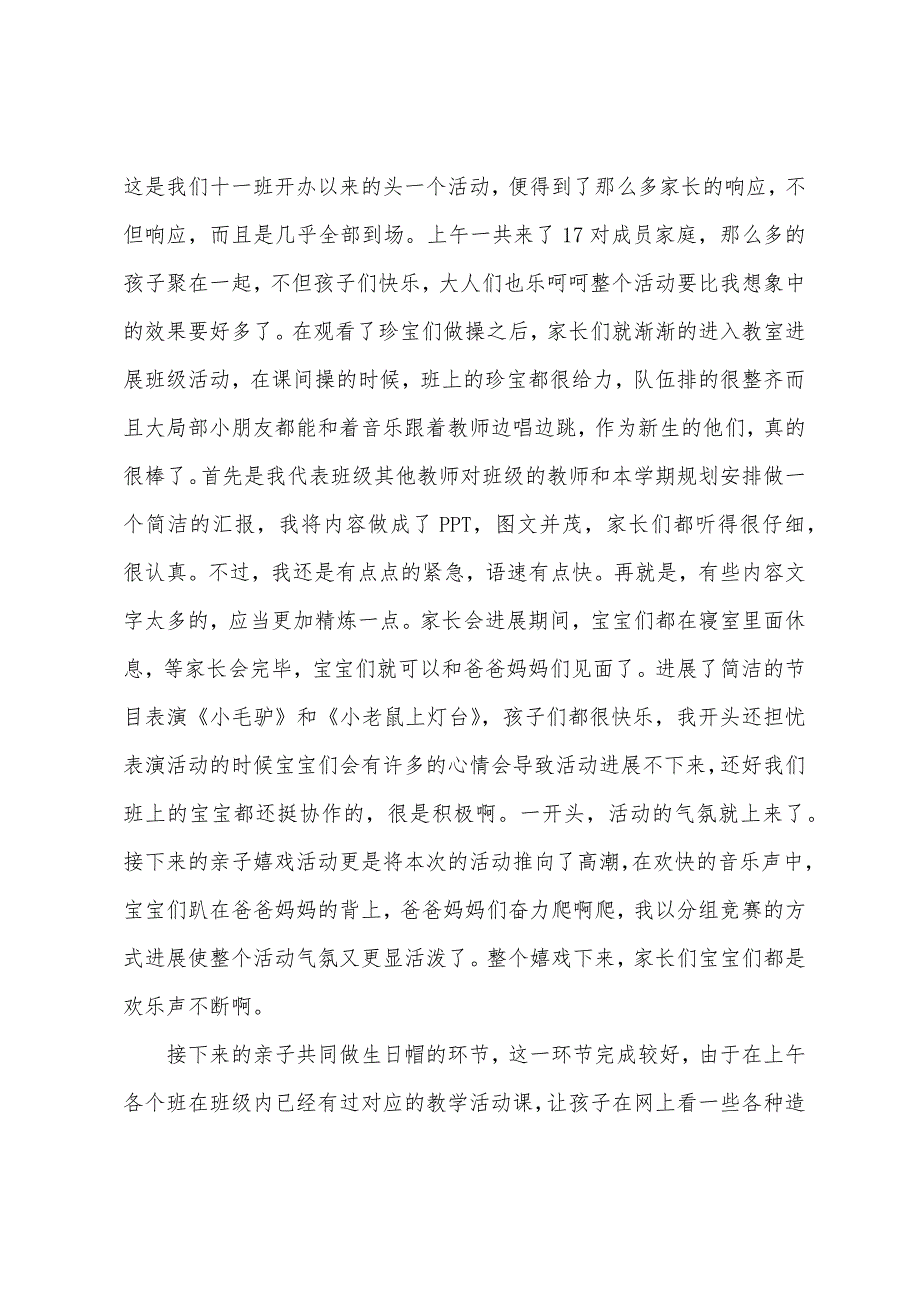 这是我们十一班开办以来的头一个活动，便得到了那么多家长的响应，不
但响应，而且是几乎全部到场。上午一共来了 17 对成员家庭，那么多的
孩子聚在一起，不但孩子们快乐，大人们也乐呵呵整个活动要比我想象中
的效果要好多了。在观看了珍宝们做操之后，家长们就渐渐的进入教室进
展班级活动，在课间操的时候，班上的珍宝都很给力，队伍排的很整齐而
且大局部小朋友都能和着音乐跟着教师边唱边跳，作为新生的他们，真的
很棒了。首先是我代表班级其他教师对班级的教师和本学期规划安排做一
个简洁的汇报，我将内容做成了 PPT，图文并茂，家长们都听得很仔细，
很认真。不过，我还是有点点的紧急，语速有点快。再就是，有些内容文
字太多的，应当更加精炼一点。家长会进展期间，宝宝们都在寝室里面休
息，等家长会完毕，宝宝们就可以和爸爸妈妈们见面了。进展了简洁的节
目表演《小毛驴》和《小老鼠上灯台》，孩子们都很快乐，我开头还担忧
表演活动的时候宝宝们会有许多的心情会导致活动进展不下来，还好我们
班上的宝宝都还挺协作的，很是积极啊。一开头，活动的气氛就上来了。
接下来的亲子嬉戏活动更是将本次的活动推向了高潮，在欢快的音乐声中，
宝宝们趴在爸爸妈妈的背上，爸爸妈妈们奋力爬啊爬，我以分组竞赛的方
式进展使整个活动气氛又更显活泼了。整个嬉戏下来，家长们宝宝们都是
欢乐声不断啊。
接下来的亲子共同做生日帽的环节，这一环节完成较好，由于在上午
各个班在班级内已经有过对应的教学活动课，让孩子在网上看一些各种造